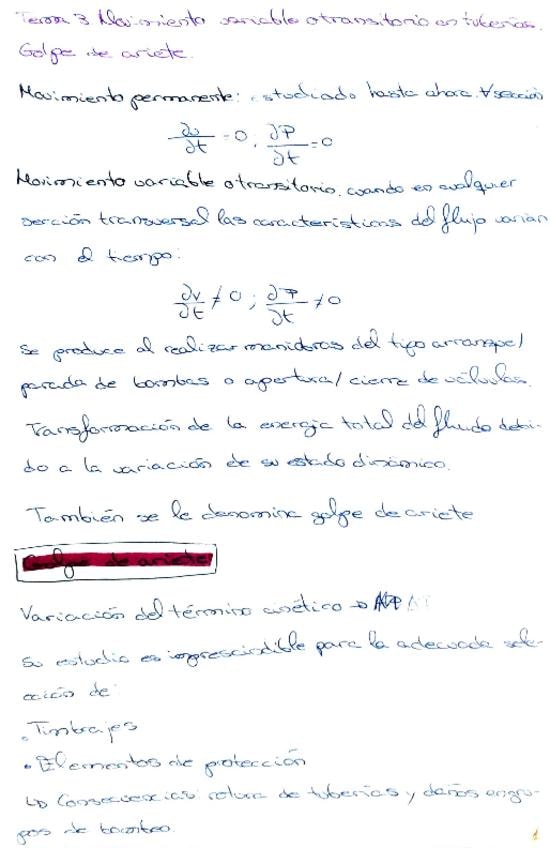 Tema 3 Movimiento variable o transitorio en tuberías.
Golpe de ariete.
Movimiento permanente: estudiado hasta ahora. ∀ sección
∂v/∂t = 0 ; ∂P/∂t = 0
Movimiento variable o transitorio. cuando en cualquier
sección transversal las características del flujo varían
con el tiempo:
∂v/∂t ≠ 0 ; ∂P/∂t ≠ 0
Se produce al realizar maniobras del tipo arranque/
parada de bombas o apertura/cierre de válvulas.
Transformación de la energía total del fluido debi-
do a la variación de su estado dinámico.
También se le denomina golpe de ariete
Golpe de ariete
Variación del término cinético →
Su estudio es imprescindible para la adecuada sele-
cción de:
• Timbrajes
• Elementos de protección
↳ Consecuencias: rotura de tuberías y daños en gru-
pos de bombeo
1